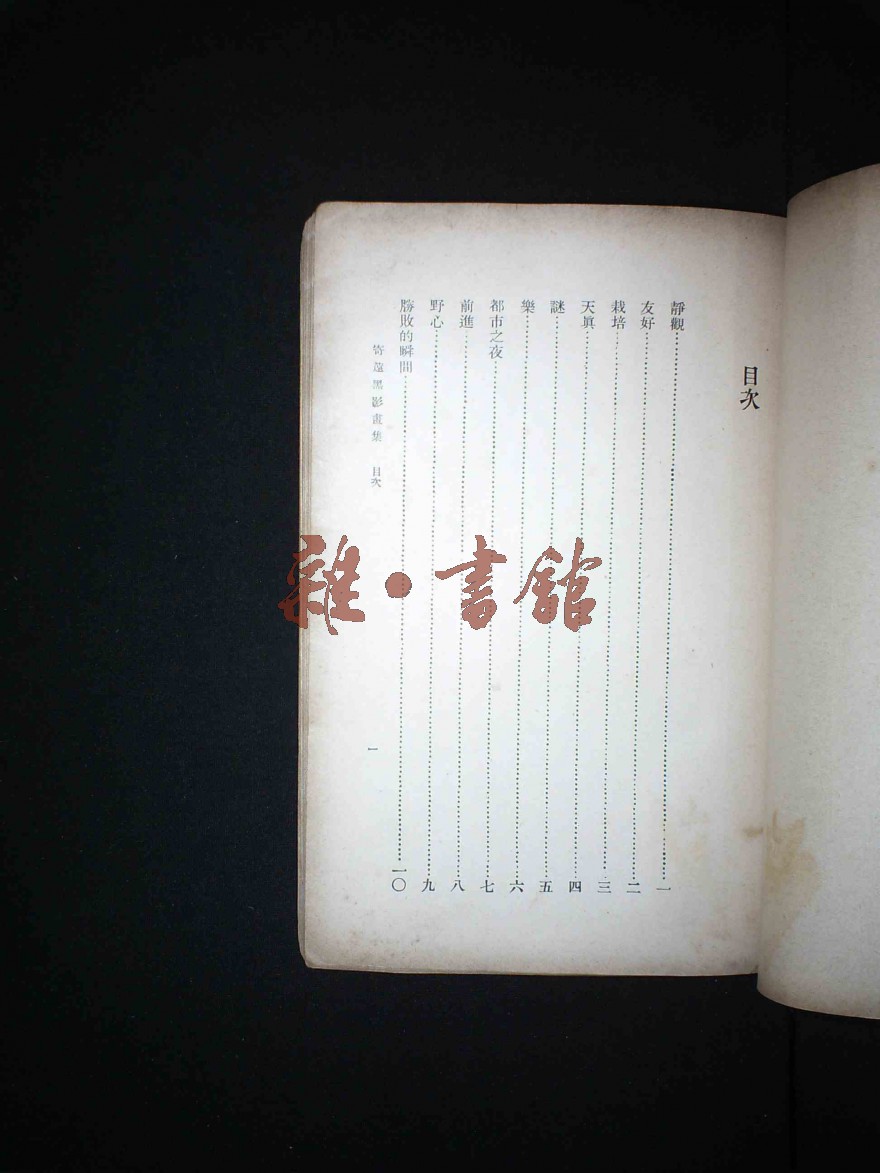 目次
靜觀……一
友好……二
栽培……三
天眞……四
謎……五
樂……六
都市之夜……七
前進……八
野心……九
勝敗的瞬間……一〇
寄遠黑影畫集 目次
一
雜·書館